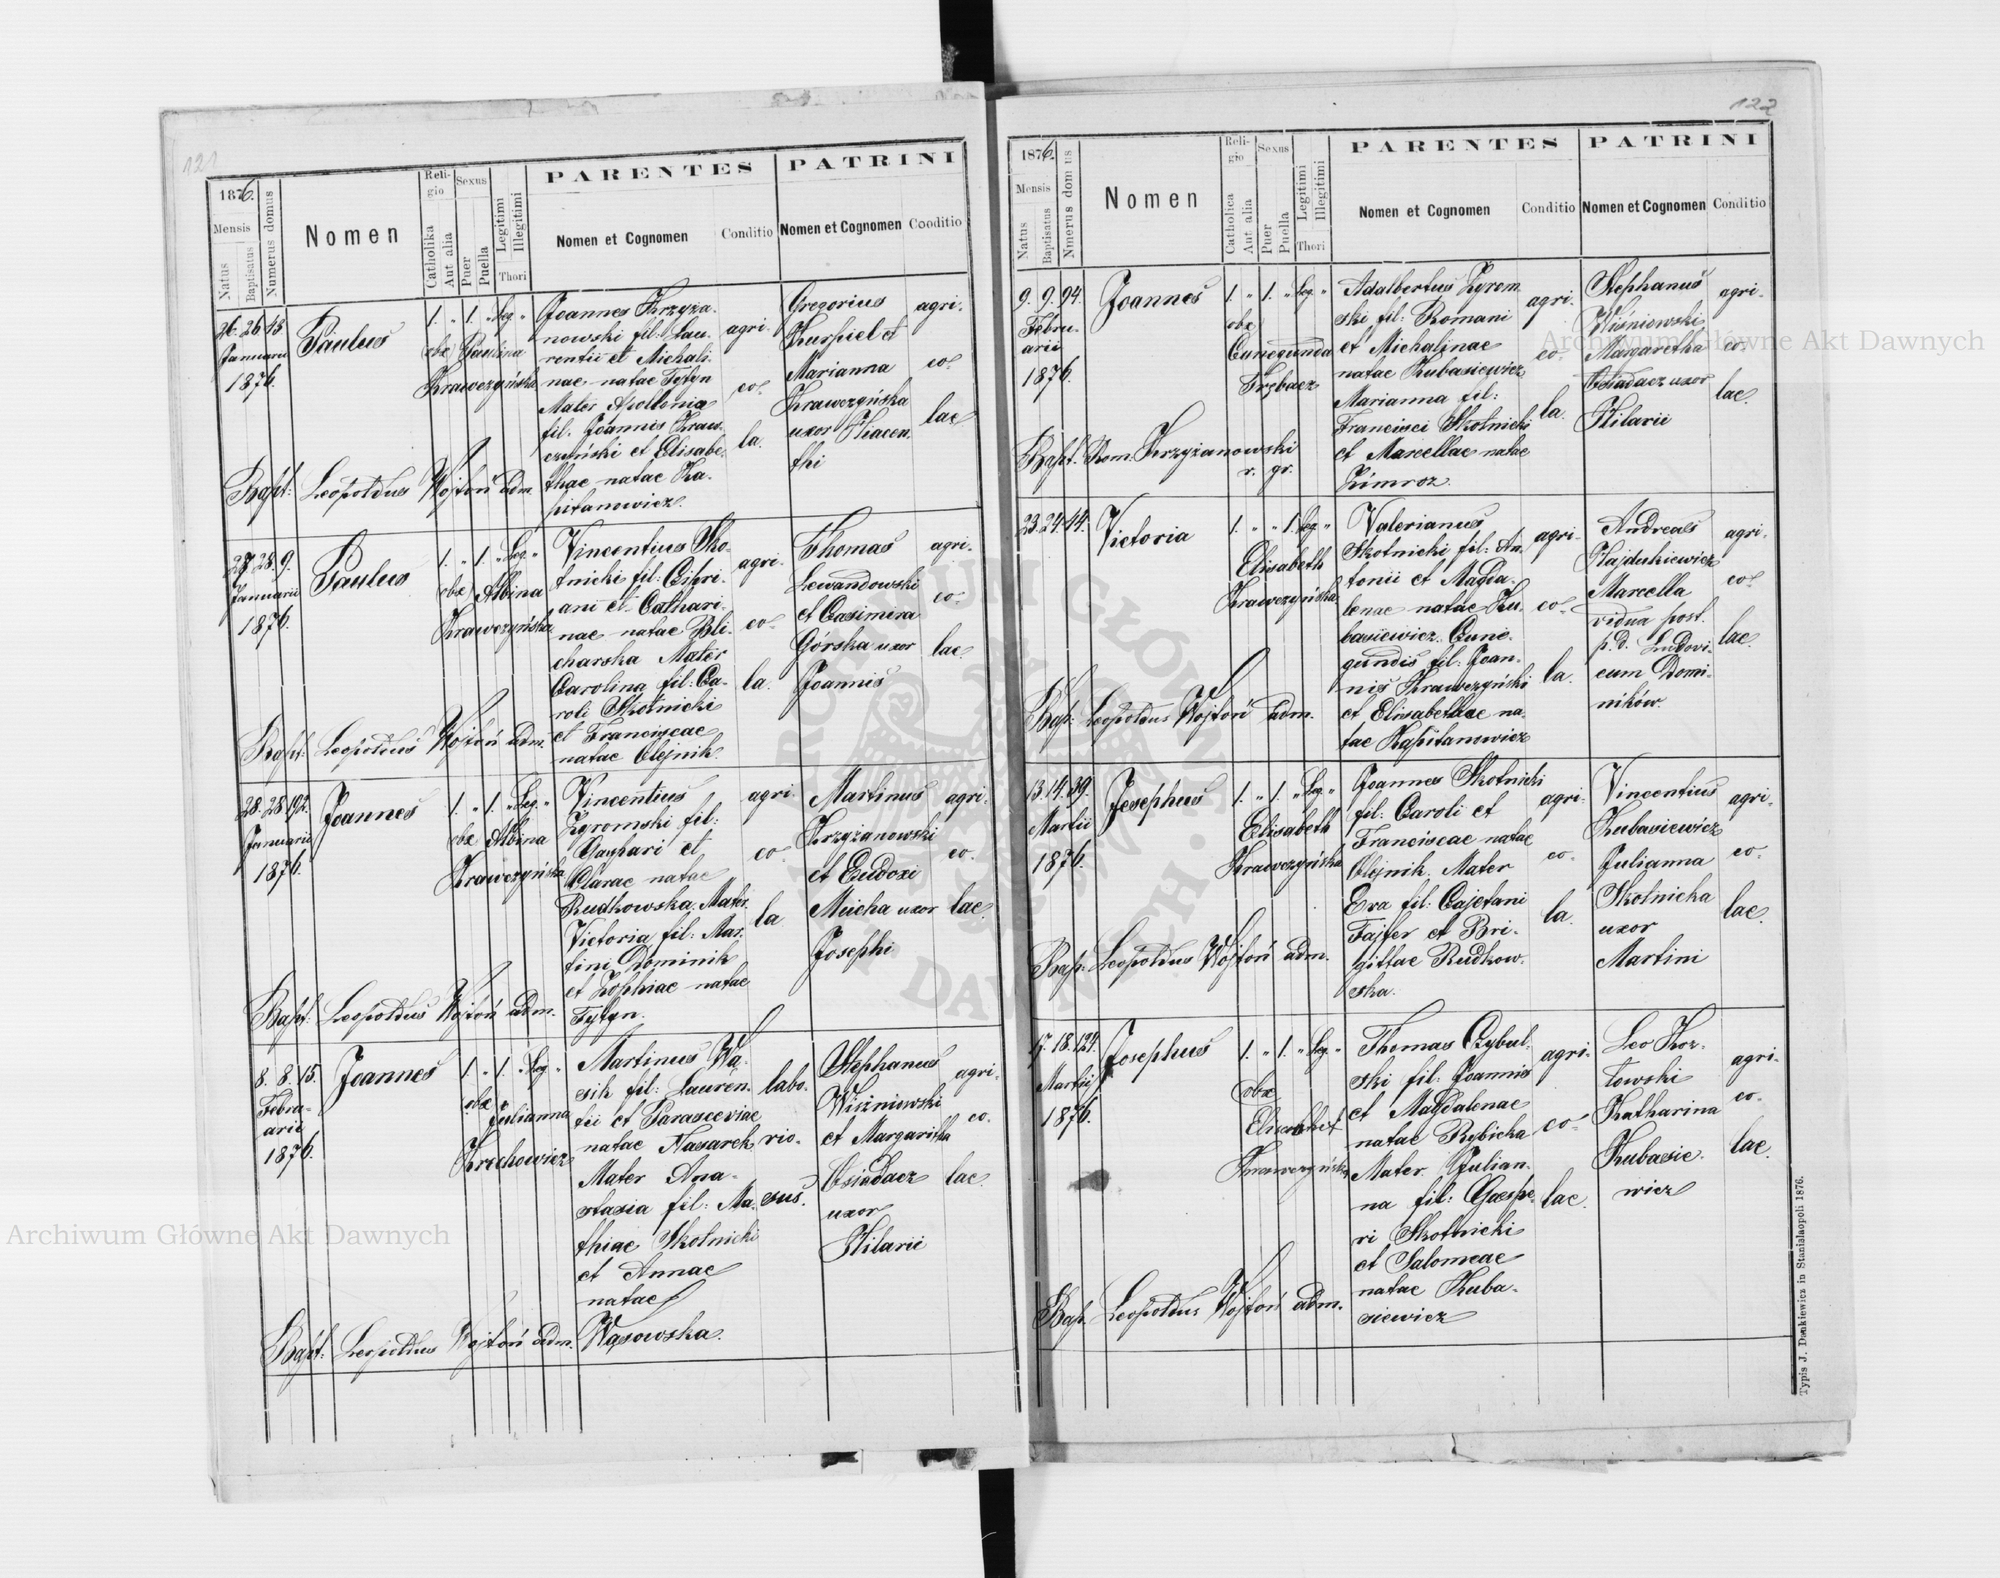 121
1876.
Mensis
Natus
Baptisatus
Numerus domus
Nomen
Religio
Catholika
Aut alia
Sexus
Puer
Puella
Legitimi
Illegitimi
Thori
PARENTES
Nomen et Cognomen
Conditio
PATRINI
Nomen et Cognomen
Cooditio
26. 26. 13.
Januarii
1876.
Paulus
1. " 1. " Leg. "
obx Paulina
Krawczyńska
Joannes Krzyża-
nowski fil: Lau-
rentii et Michali-
nae natae Tytyn
Mater Apollonia
fil. Joannis Kraw-
czyński et Elisabe-
thae natae Ka-
pitanowicz.
agri-
co-
la.
Gregorius
Kurpiel et
Marianna
Krawczyńska
uxor Hiacen-
thi
agri-
co-
lae
Bapt: Leopoldus Wojtoń adm.
27. 28. 9.
Januarii
1876.
Paulus
1. " 1. " Leg. "
obx Albina
Krawczyńska
Vincentius Sko-
tnicki fil: Cipri-
ani et Cathari-
nae natae Bli-
charska Mater
Carolina fil: Ca-
roli Skotnicki
et Franciscae
natae Olejnik.
agri-
co-
la.
Thomas
Lewandowski
et Casimira
Górska uxor
Joannis
agri-
co-
lae.
Bapt: Leopoldus Wojtoń adm.
28. 28. 192.
Januarii
1876.
Joannes
1. " 1. " Leg. "
obx Albina
Krawczyńska
Vincentius
Zgromski fil:
Gaspari et
Clarae natae
Rudkowska. Mater
Victoria fil: Mar-
tini Dominik
et Zophiae natae
Tytyn.
agri-
co-
la
Martinus
Krzyżanowski
et Eudoxi
Mucha uxor
Josephi
agri-
co-
lae.
Bapt: Leopoldus Wojtoń adm.
8. 8. 15.
Febru-
arii
1876.
Joannes
1. " 1. " Leg. "
obx
Julianna
Krechowicz
Martinus Wą-
sik fil: Lauren-
tii et Parasceviae
natae Nasarek
Mater Ana-
stasia fil: Ma-
thiae Skotnicki
et Annae
natae
Wąsowska.
labo-
rio-
sus.
Stephanus
Wiśniowski
et Margaritha
Osiadacz
uxor
Hilarii
agri-
co-
lae.
Bapt: Leopoldus Wojtoń adm.
122
1876.
Mensis
Natus
Baptisatus
Nmerus domus
Nomen
Religio
Catholica
Aut alia
Sexus
Puer
Puella
Legitimi
Illegitimi
Thori
PARENTES
Nomen et Cognomen
Conditio
PATRINI
Nomen et Cognomen
Conditio
9. 9. 94.
Febru-
arii
1876.
Joannes
1. " 1. " Leg. "
obx
Cunegunda
Trębacz
Adalbertus Zgrom
ski fil: Romani
et Michalinae
natae Kubasiewicz
Marianna fil:
Francisci Skotnicki
et Marcellae natae
Zimroz.
agri-
co-
la.
Stephanus
Wiśniowski
Margaretha
Osiadacz uxor
Hilarii
agri-
co-
lae.
Bapt: Rom. Krzyżanowski
r. gr.
23. 24. 44.
Victoria
1. " " 1. Leg. "
Elisabeth
Krawczyńska
Valerianus
Skotnicki fil: An-
tonii et Magda-
lenae natae Ku-
basiewicz. Cune-
gundis fil: Joan-
nis Krawczyński
et Elisabethae na-
tae Kapitanowicz
agri-
co-
la.
Andreas
Hajdukiewicz
Marcella
vidua post.
p. d. Ludovi-
cum Domi-
ników.
agri-
co-
lae.
Bap: Leopoldus Wojtoń adm.
13. 14. 39.
Martii
1876.
Josephus
1. " 1. " Leg. "
Elisabeth
Krawczyńska
Joannes Skotnicki
fil: Caroli et
Franciscae natae
Olejnik. Mater
Eva fil: Cajetani
Fajfer et Bri-
gittae Rudkow-
ska.
agri-
co-
la.
Vincentius
Kubasiewicz
Julianna
Skotnicka
uxor
Martini
agri-
co-
lae.
Bap: Leopoldus Wojtoń adm.
17. 18. 124.
Martii
1876.
Josephus
1. " 1. " Leg. "
obx
Elisabhet
Krawczyńska
Thomas Cybul-
ski fil: Joannis
et Magdalenae
natae Rybicka
Mater Julian-
na fil: Gaspe-
ri Skotnicki
et Salomeae
natae Kuba-
siewicz
agri-
co-
lae.
Leo Koz-
łowski
Katharina
Kubasie-
wicz
agri-
co-
lae.
Bap. Leopoldus Wojtoń adm.
Typis J. Dankiewicz in Stanislaopoli 1876.
Archiwum Główne Akt Dawnych
Archiwum Główne Akt Dawnych
ARCHIWUM GŁÓWNE AKT DAWNYCH